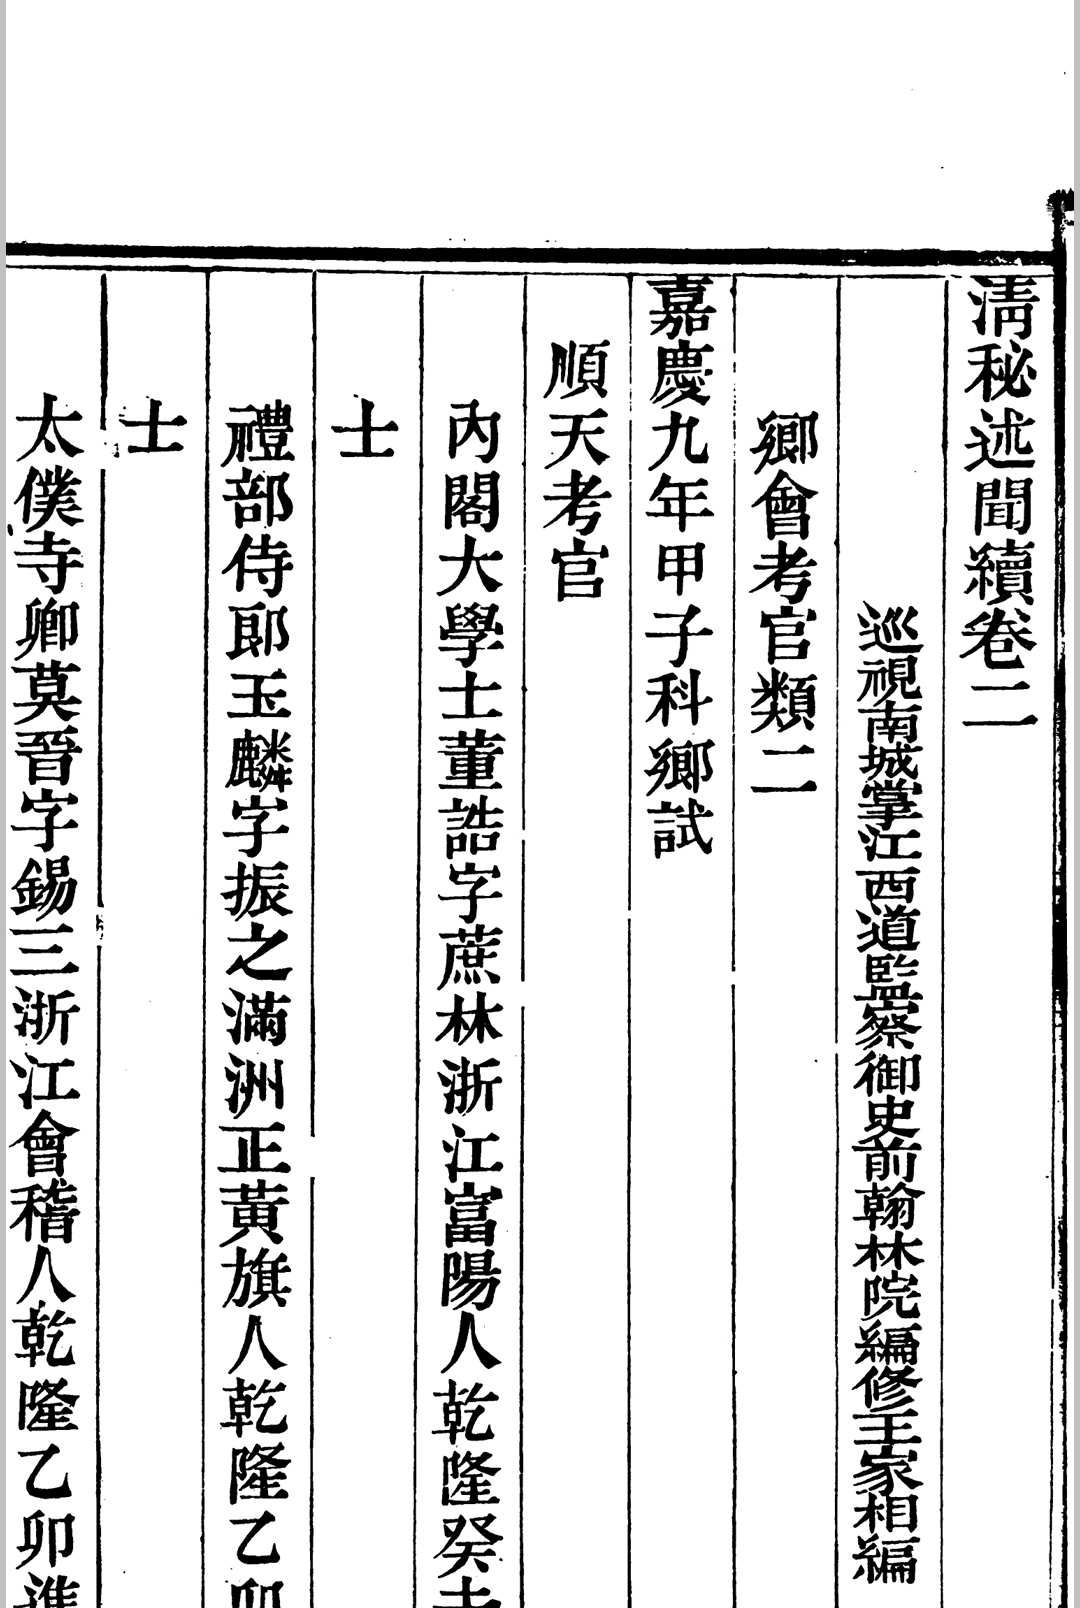 淸秘述聞續卷二
巡視南城掌江西道監察御史前翰林院編修王家相編
鄉會考官類二
嘉慶九年甲子科鄉試
順天考官
內閣大學士董誥字蔗林浙江富陽人乾隆癸未
士
禮部侍郎玉麟字振之滿洲正黃旗人乾隆乙卯
士
太僕寺卿莫晉字錫三浙江會稽人乾隆乙卯進